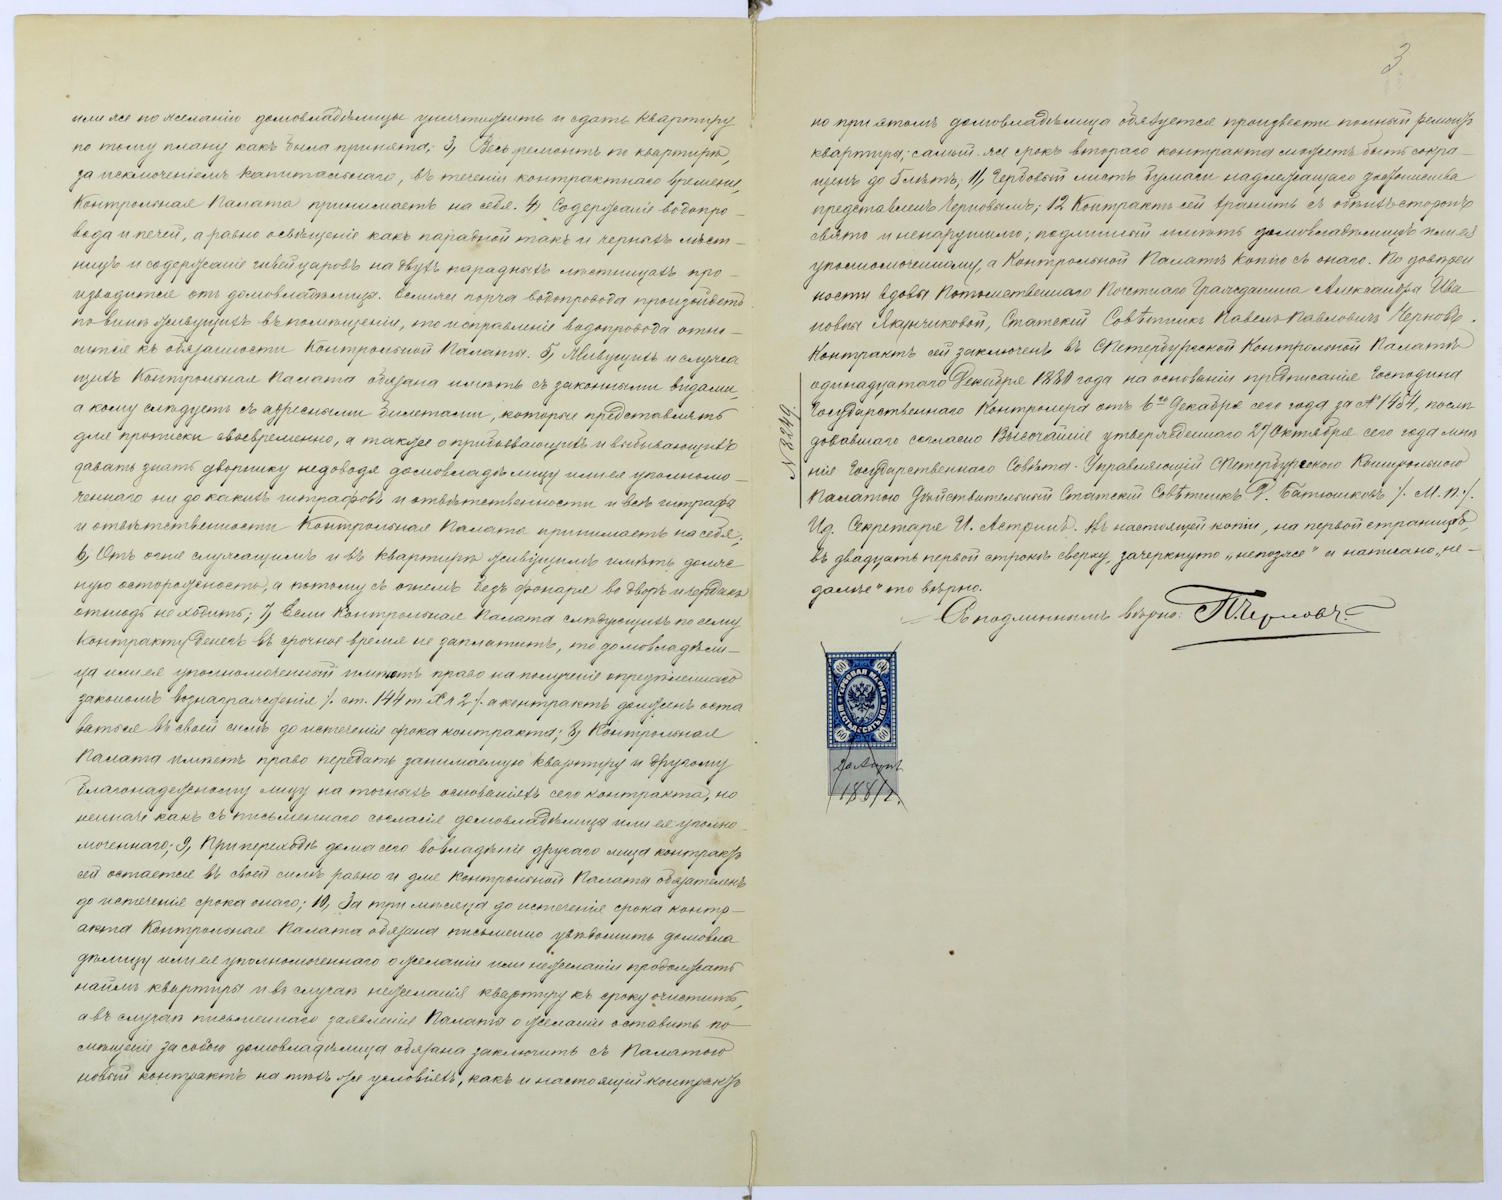 или же по желанію домовладѣлицы уничтожить и сдать квартиру
по тому плану какъ была принята; 3, Весь ремонтъ по квартирѣ,
за исключеніемъ капитальнаго, въ теченіи контрактнаго времени,
Контрольная Палата принимаетъ на себя. 4, Содержаніе водопро-
вода и печей, а равно освѣщеніе какъ парадной такъ и черныхъ лѣст-
ницъ и содержаніе швейцаровъ на двухъ парадныхъ лѣстницахъ про-
изводится отъ домовладѣлицы. Если же порча водопровода произойдетъ
по винѣ живущихъ въ помѣщеніи, то исправленіе водопровода отно-
сится къ обязанности Контрольной Палаты. 5, Живущихъ и служа
щихъ Контрольная Палата обязана имѣть съ законными видами,
а кому слѣдуетъ съ адресными билетами, которые представлять
для прописки своевременно, а также о прибывающихъ и выбывающихъ
давать знать дворнику недоводя домовладѣлицу или ея уполномо-
ченнаго ни до какихъ штрафовъ и отвѣтственности и всѣ штрафы
и отвѣтственности Контрольная Палата принимаетъ на себя;
6, Отъ огня служащимъ и въ квартирѣ живущимъ имѣть долж
ную осторожность, а потому съ огнемъ безъ фонаря во дворъ и чердакъ
отнюдь не ходить; 7, Если Контрольная Палата слѣдующихъ по сему
Контракту денегъ въ срочное время не заплатитъ, то домовладѣли-
ца или ея уполномоченный имѣютъ право на полученіе опредѣленнаго
закономъ вознагражденія /. ст. 144 т X ч 2 /. а контрактъ долженъ оста
ваться въ своей силѣ до истеченія срока контракта; 8, Контрольная
Палата имѣетъ право передать занимаемую квартиру и другому
благонадежному лицу на точныхъ основаніяхъ сего контракта, но
неиначе какъ съ письменнаго согласія домовладѣлицы или ея уполно-
моченнаго; 9, При переходѣ дома сего во владѣніе другаго лица контрактъ
сей остается въ своей силѣ равно и для Контрольной Палаты обязателенъ
до истеченія срока онаго; 10, За три мѣсяца до истеченія срока контр-
акта Контрольная Палата обязана письменно увѣдомить домовла
дѣлицу или ея уполномоченнаго о желаніи или нежеланіи продолжать
наймъ квартиры и въ случаѣ нежеланія квартиру къ сроку очистить,
а въ случаѣ письменнаго заявленія Палаты о желаніи оставить по-
мѣщеніе за собою домовладѣлица обязана заключить съ Палатою
новый контрактъ на тѣхъ же условіяхъ, какъ и настоящій контрактъ
3
но при этомъ домовладѣлица обязуется произвести полный ремонтъ
квартиры; самый же срокъ втораго контракта можетъ быть сокра-
щенъ до 5 лѣтъ; 11, Гербовый листъ бумаги надлежащаго достоинства
представленъ Черновымъ; 12 Контрактъ сей хранить съ обѣихъ сторонъ
свято и ненарушимо; подлинный имѣть домовладѣлицѣ или ея
уполномоченному, а Контрольной Палатѣ копію съ онаго. По довѣрен
ности вдовы Потомственнаго Почетнаго Гражданина Александры Ива-
новны Якунчиковой, Статскій Совѣтникъ Павелъ Павловичъ Черновъ.
Контрактъ сей заключенъ въ СПетербургской Контрольной Палатѣ
одинадцатаго Декабря 1880 года на основаніи предписанія Господина
Государственнаго Контролера отъ 6го Декабря сего года за № 1454, послѣ
довавшаго согласно Высочайше утвержденнаго 27 Октября сего года мнѣ
нія Государственнаго Совѣта. Управляющій СПетербургскою Контрольною
Палатою Дѣйствительный Статскій Совѣтникъ Ѳ. Батюшковъ /. М. П. /.
Ид. Секретаря И. Астринъ. Въ настоящей копіи, на первой страницѣ,
въ двадцать первой строкѣ сверху, зачеркнуто „непозже" и написано „не-
далѣе" то вѣрно.
Съ подлиннымъ вѣрно: П. Черновъ.
№ 8249.
60 60
ГЕРБОВАЯ МАРКА
60 60
1881 г.